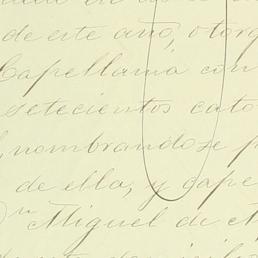 de este año, otorg
Capellania con
setecientos cato
nombrandose p
de ella, y cape
Dn Miguel de